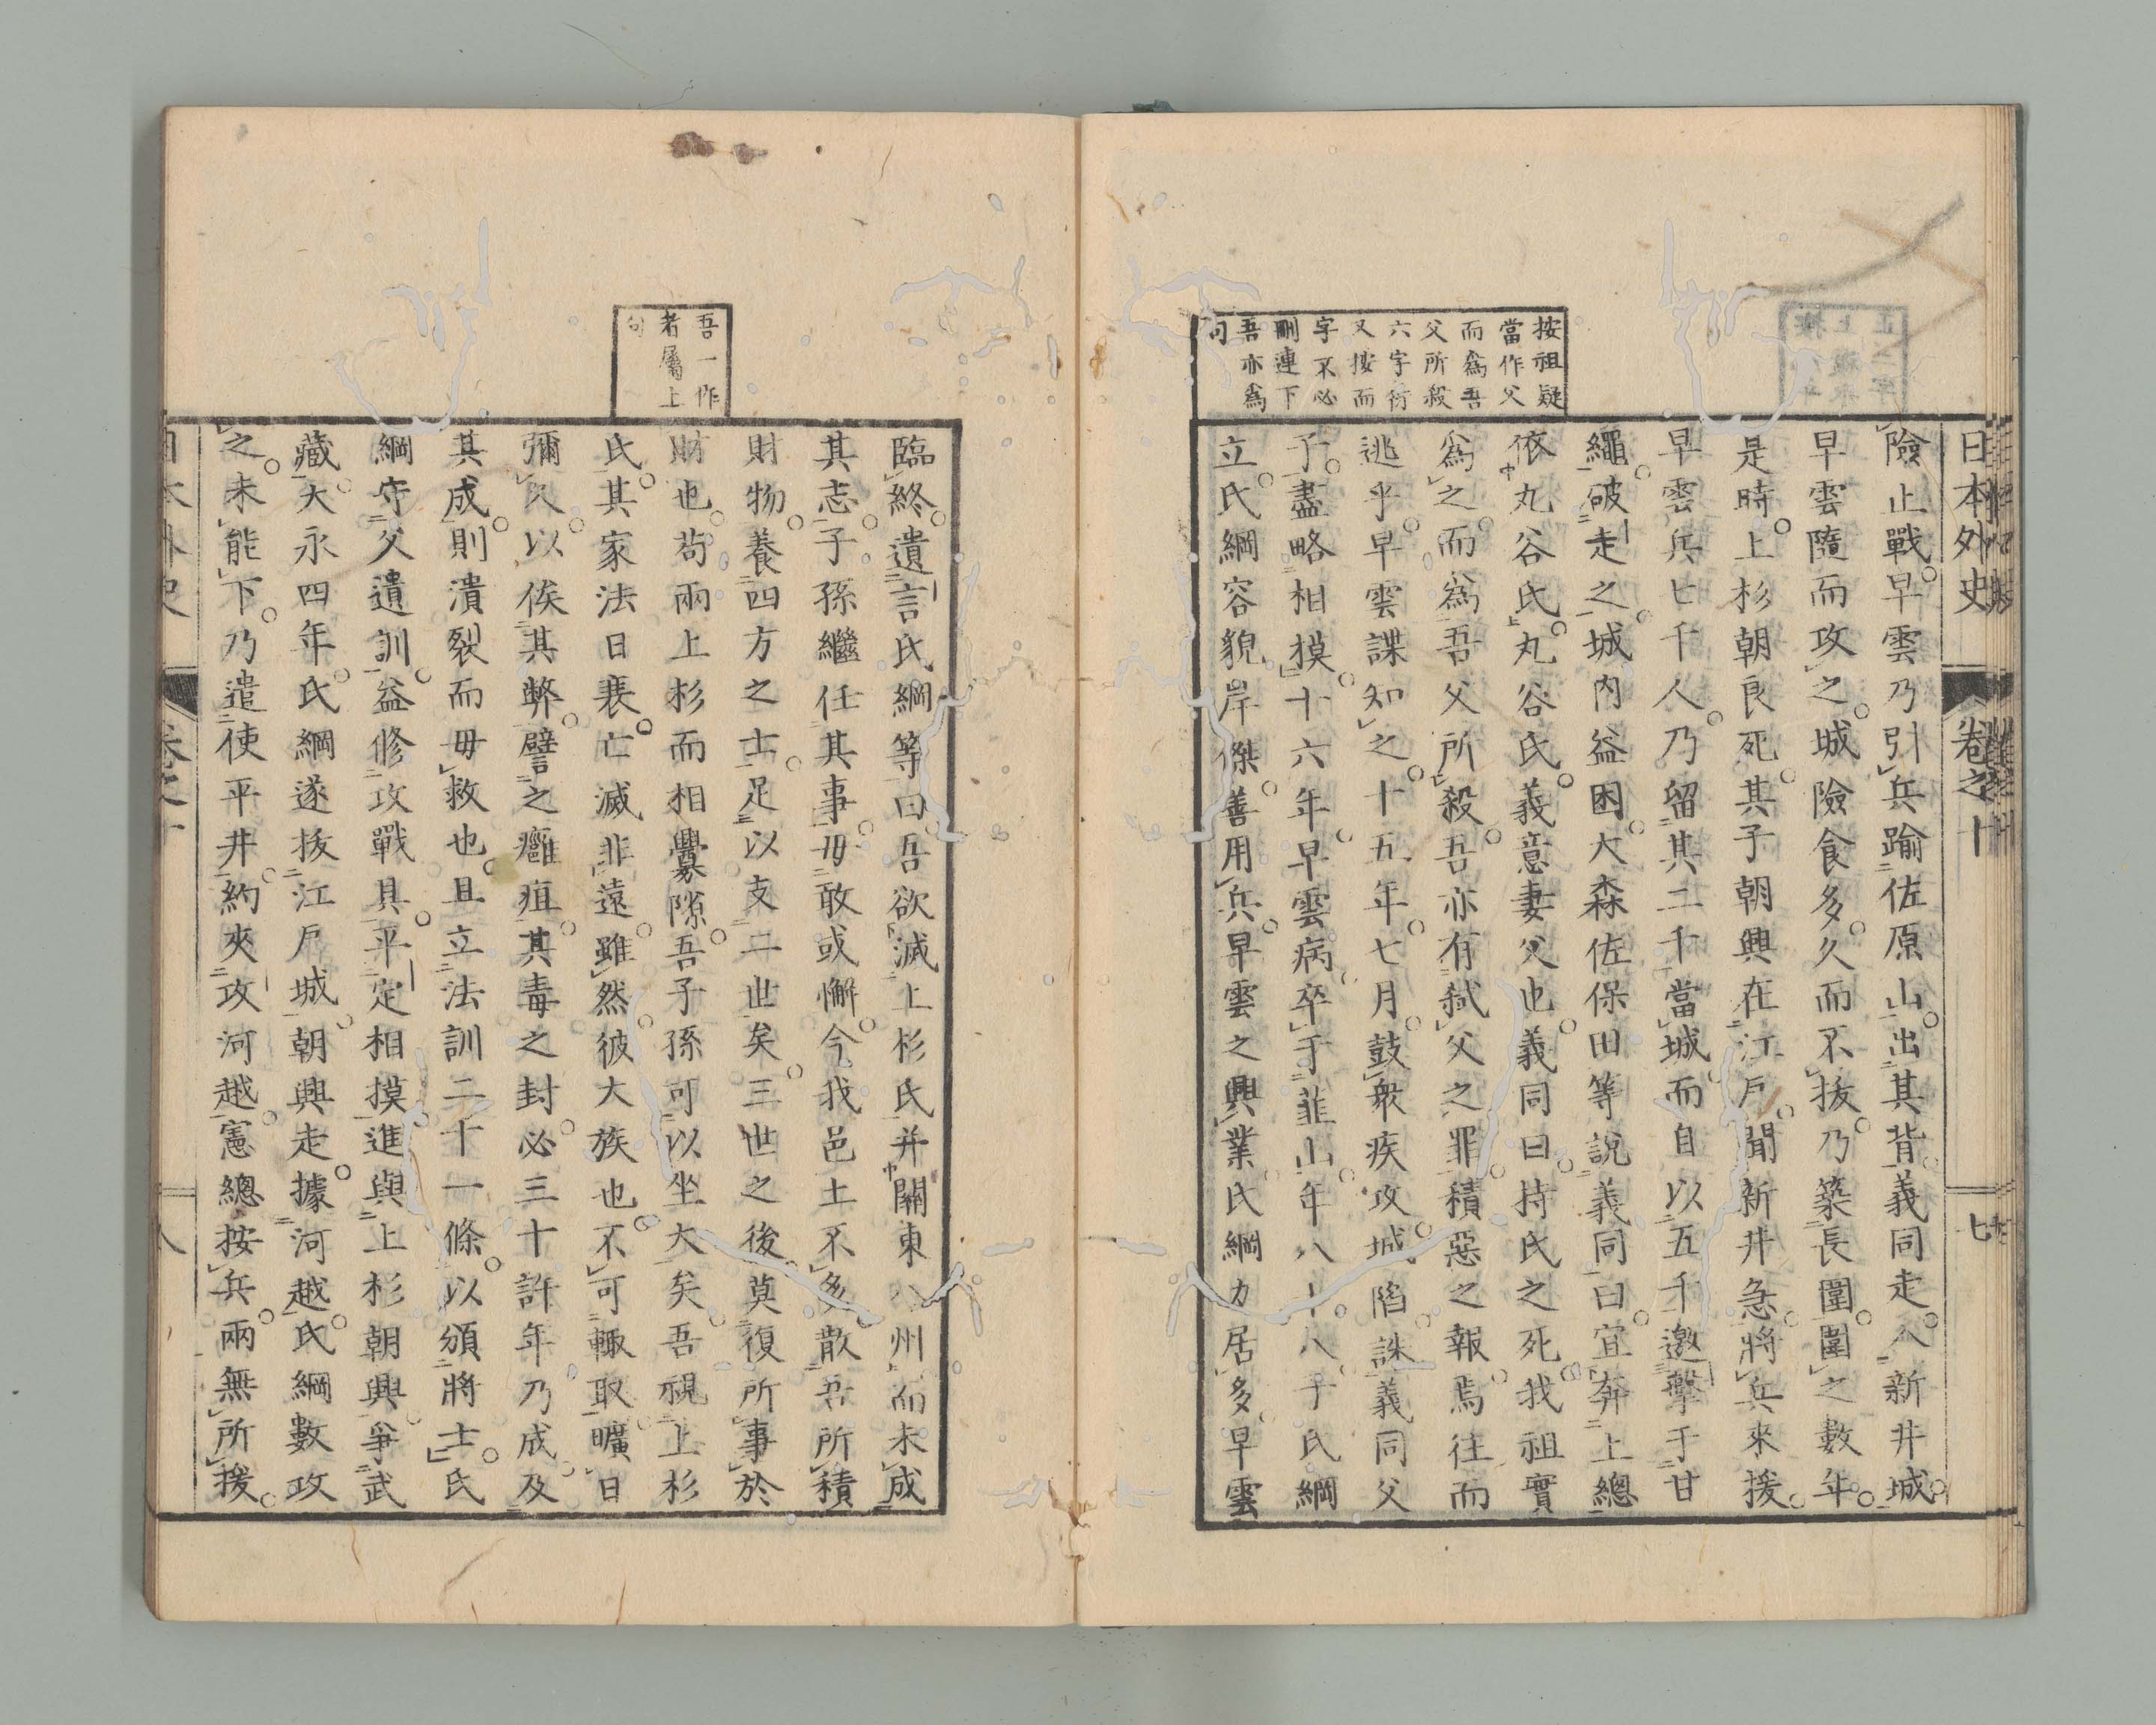 日本外史 卷之十 七
按祖疑
當作父
而爲吾
父所殺
六字衍
又按而
字不必
刪連下
吾亦爲
句
險止戰。早雲乃引兵踰佐原山。出其背。義同走入新井城。
早雲隨而攻之。城險食多。久而不拔。乃築長圍。圍之數年。
是時。上杉朝良死。其子朝興在江戶。聞新井急。將兵來援。
早雲兵七千人。乃留其二千當城。而自以五千邀擊于甘
繩。破走之。城內益困。大森佐保田等說義同曰。宜奔上總
依丸谷氏。丸谷氏。義意妻父也。義同曰。持氏之死。我祖實
爲之。而爲吾父所殺。吾亦有弑父之罪。積惡之報。焉往而
逃乎。早雲諜知之。十五年。七月。鼓衆疾攻。城陷。誅義同父
子。盡略相摸。十六年。早雲病。卒于韮山。年八十八。子氏綱
立。氏綱容貌岸傑。善用兵。早雲之興業。氏綱力居多。早雲
吾一作
者屬上
句
臨終。遺言氏綱等曰。吾欲滅上杉氏。并關東八州。而未成
其志。子孫繼任其事。毋敢或懈。今我邑土不多。散吾所積
財物。養四方之士。足以支二世矣。三世之後。莫復所事於
財也。苟兩上杉而相釁隙。吾子孫可以坐大矣。吾視上杉
氏。其家法日衰。亡滅非遠。雖然。彼大族也。不可輒取。曠日
彌久。以俟其弊。譬之癰疽。其毒之封。必三十許年乃成。及
其成。則潰裂而毋救也。且立法訓二十一條。以頒將士。氏
綱守父遺訓。益修攻戰具。平定相摸。進與上杉朝興。爭武
藏。大永四年。氏綱遂拔江戶城。朝興走。據河越。氏綱數攻
之。未能下。乃遣使平井。約夾攻河越。憲總按兵。兩無所援。
日本外史 卷之十 八